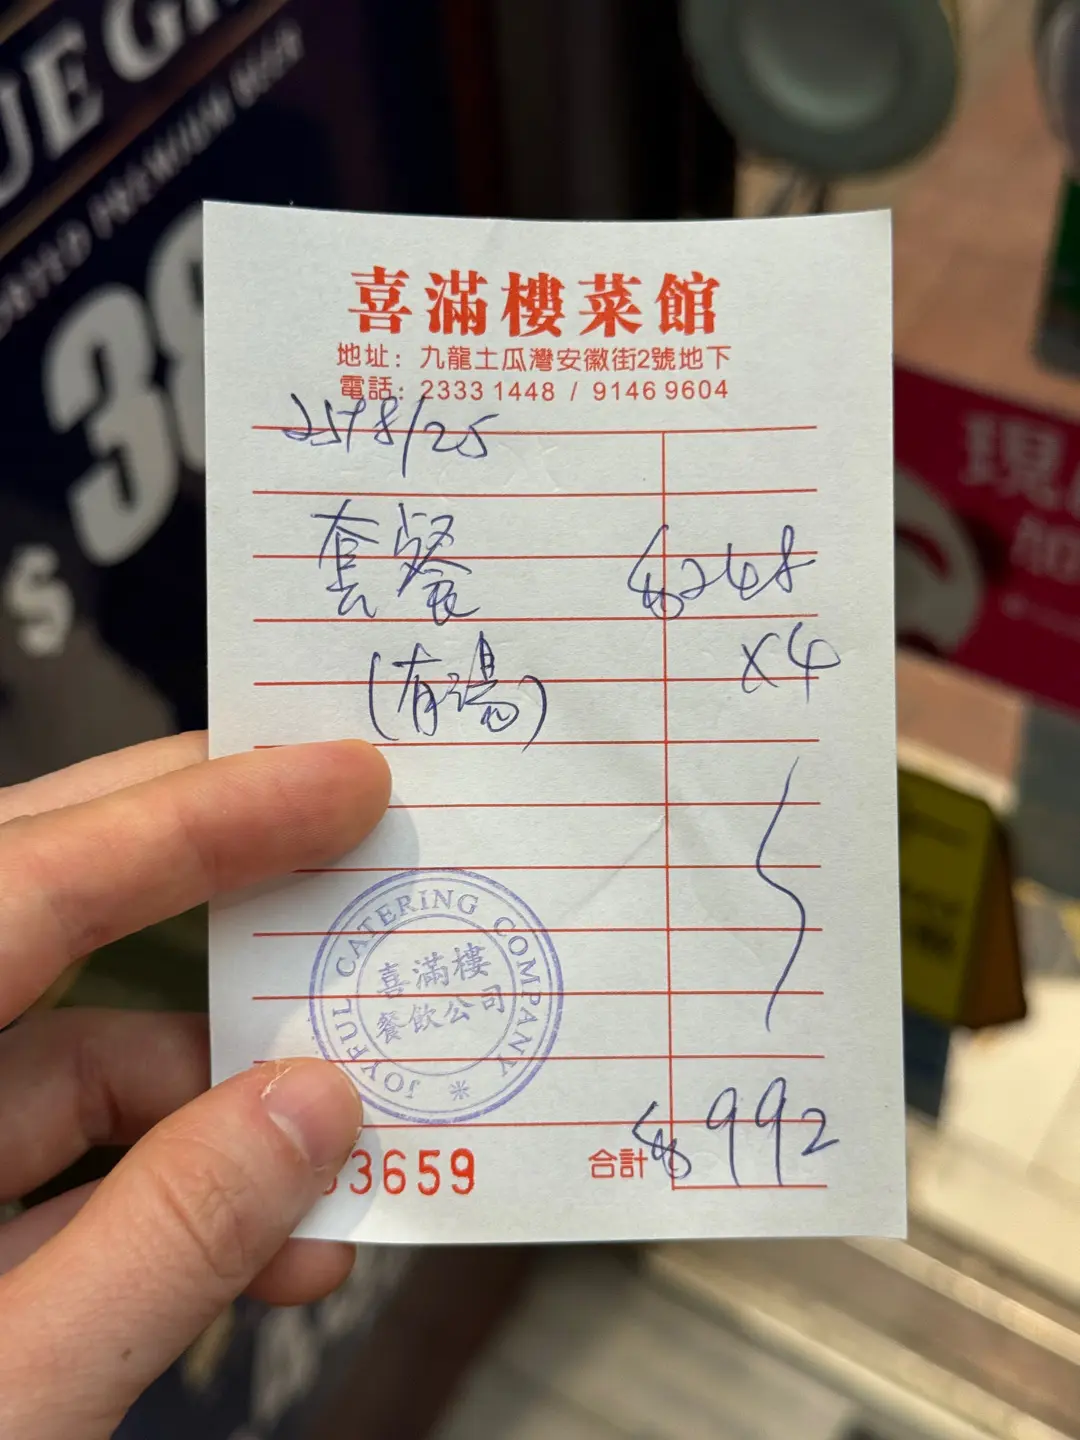 喜滿樓菜館
地址：九龍土瓜灣安徽街2號地下
電話：2333 1448 / 9146 9604
25/8/25
套餐 $248
(有湯) x4
JOYFUL CATERING COMPANY
喜滿樓
餐飲公司
3659
合計 $992
UE G
PREMIUM BEER
38
$
現